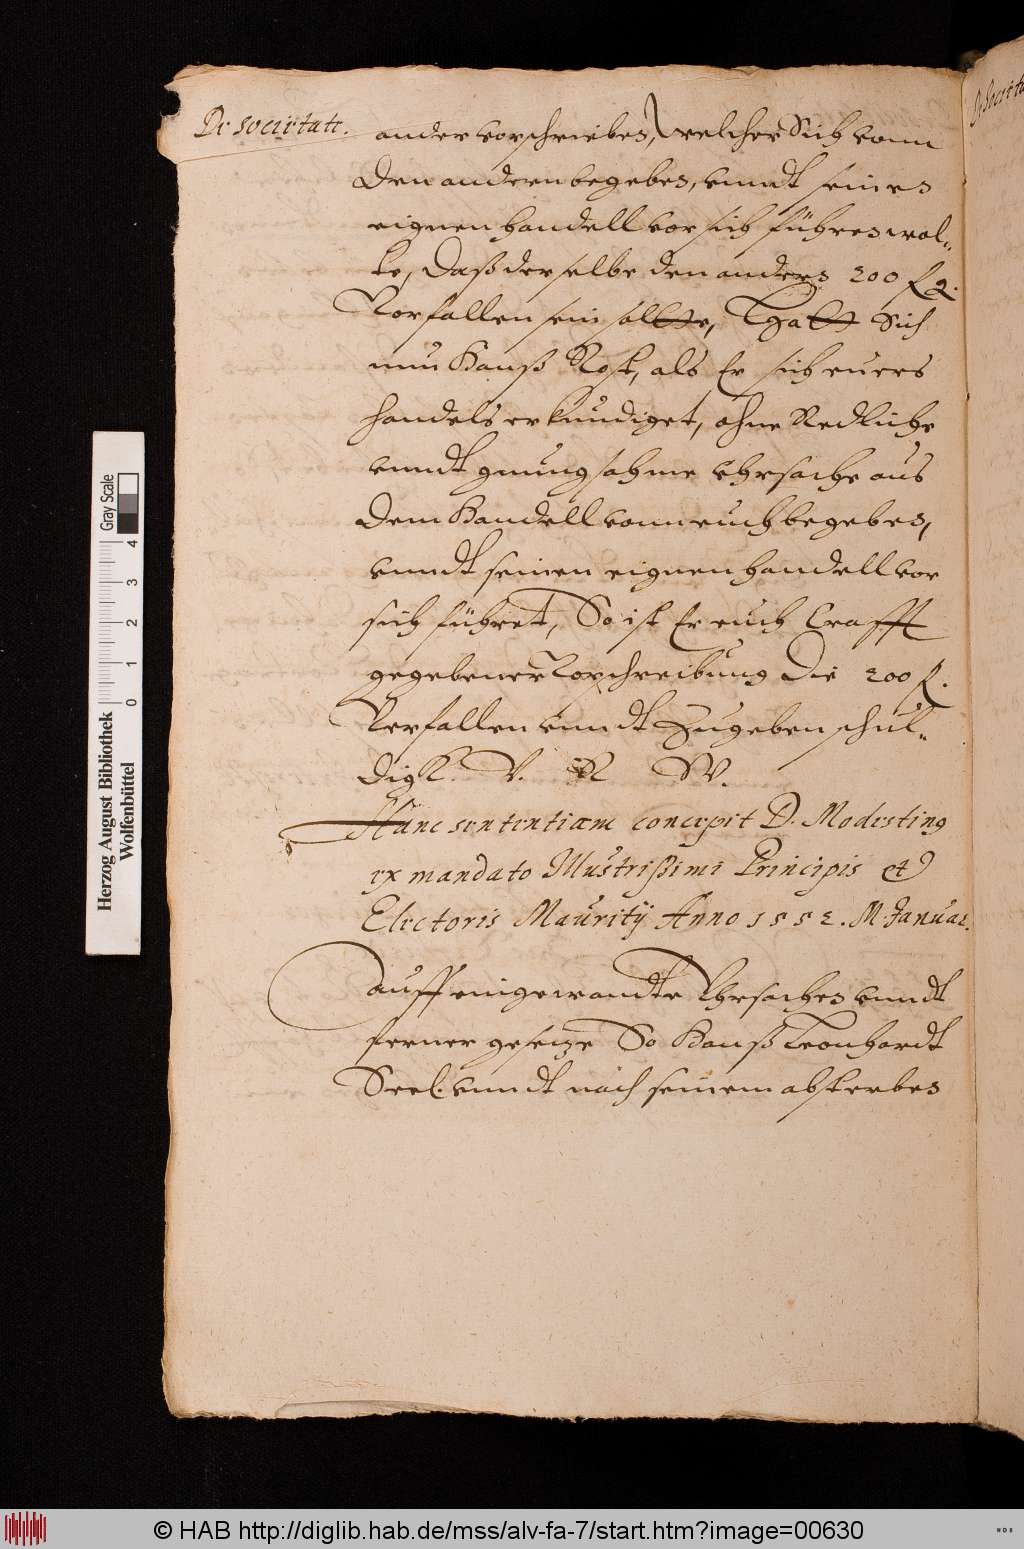 De societate.
ander vorschrieben, welcher Sich vonn
Den andern begeben, vnndt seines
eignen handell vor sich führen wol-
te, Daß derselbe den andern 200 fl.
Vorfallen sein solte, That Sich
nun Hanß Rost, als Er sich eures
handels erkundiget, ohne Redliche
vnndt gnungsahme Vhrsache aus
Dem Handell vonn euch begeben,
vnndt seinen eignen handell vor
sich führet, So ist Er euch Crafft
gegebener Vorschreibung Die 200 fl.
Verfallen vnndt Zugeben schul-
dig V. R W.
Hanc sententiam concepit D. Modesting
ex mandato Illustrißimi Principis et
Electoris Maurity Anno 1552. M. Januar.
auff eingewandte Vhrsachen vnndt
ferner gesetze So Hanß Leonhardt
Seel. vnndt nach seinem absterben
Gray Scale
0 1 2 3 4
Herzog August Bibliothek
Wolfenbüttel
© HAB http://diglib.hab.de/mss/alv-fa-7/start.htm?image=00630